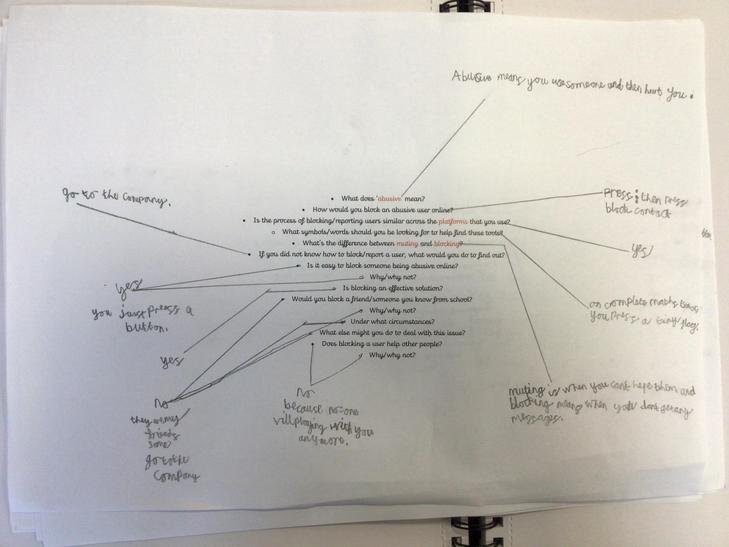 Abusive means you use someone and then hurt you.
go to the company.
• What does 'abusive' mean?
• How would you block an abusive user online?
Press ⋮ then press
block contact
• Is the process of blocking/reporting users similar across the platforms that you use?
o What symbols/words should you be looking for to help find these tools?
• What's the difference between muting and blocking?
yes
• If you did not know how to block/report a user, what would you do to find out?
• Is it easy to block someone being abusive online?
o Why/why not?
yes
you just press a
button.
• Is blocking an effective solution?
• Would you block a friend/someone you know from school?
on complete maths
you press a tiny flag.
o Why/why not?
o Under what circumstances?
• What else might you do to deal with this issue?
• Does blocking a user help other people?
o Why/why not?
yes
No
they are my
friends
go to the
company
No
because no-one
will playing with you
any more.
muting is when you can't hear them and
blocking means when you don't get any
messages.